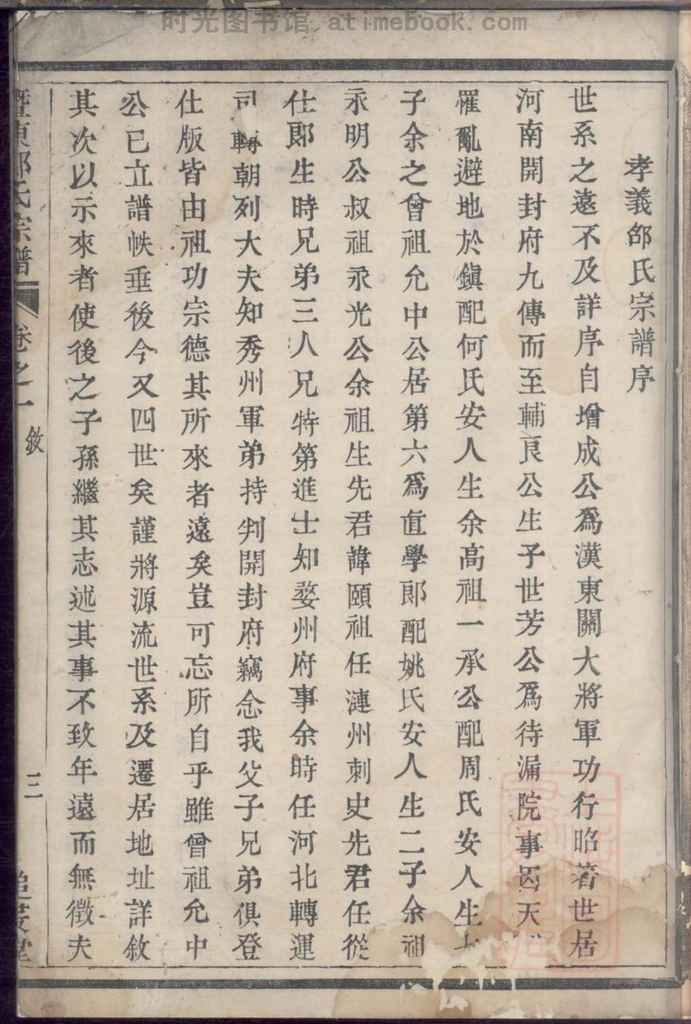 时光图书馆 atimebook.com
孝義邰氏宗譜序
世系之遠不及詳序自增成公爲漢東關大將軍功行昭著世居
河南開封府九傳而至輔良公生子世芳公爲待漏院事因天
罹亂避地於鎮配何氏安人生余高祖一承公配周氏安人生
子余之曾祖允中公居第六爲直學郎配姚氏安人生二子余祖
永明公叔祖永光公余祖生先君諱頤祖任漣州刺史先君任從
仕郎生時兄弟三人兄特第進士知婺州府事余時任河北轉運
司轉朝列大夫知秀州軍弟持判開封府竊念我父子兄弟俱登
仕版皆由祖功宗德其所來者遠矣豈可忘所自乎雖曾祖允中
公已立譜帙垂後今又四世矣謹將源流世系及遷居地址詳敘
其次以示來者使後之子孫繼其志述其事不致年遠而無徵夫
暨東邰氏宗譜
卷之一 敘
三